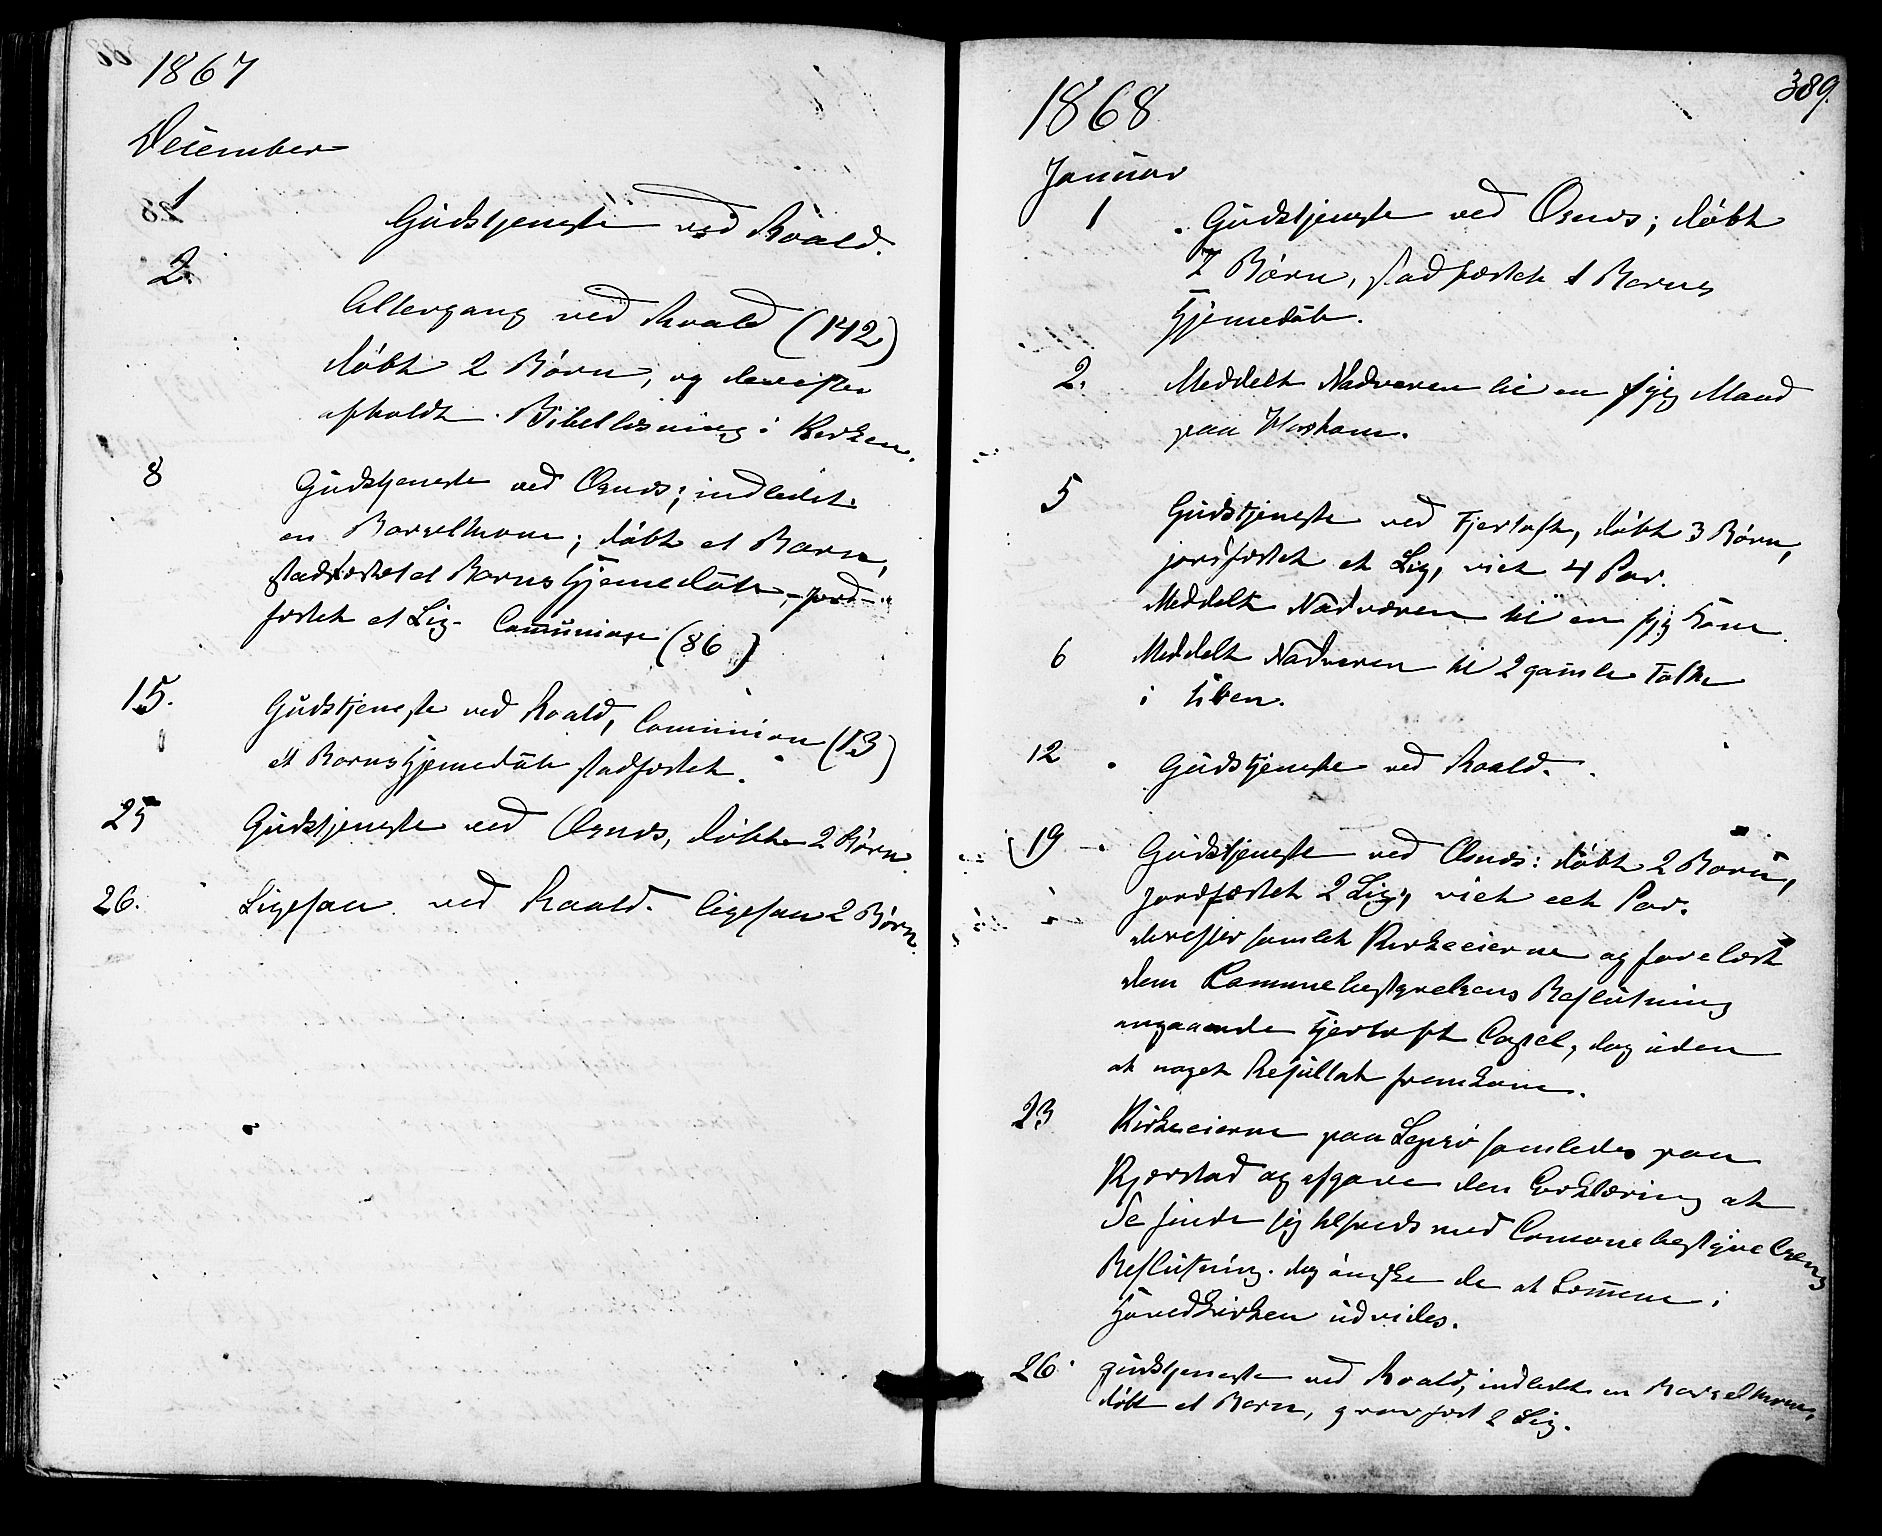 1867
December
1
Gudstjeneste ved Roald.
2.
Altergang ved Roald (142)
døbt 2 Børn, og derefter
afholdt Bibellæsning i Kirken.
8
Gudstjeneste ved Osnæs; indledet
en Barselkone; døbt et Barn,
stadfæstet et Barns Hjemedåb, jord-
fæstet et Lig- Communion (86)
15.
Gudstjeneste ved Roald, Communion (13)
et Barns Hjemedåb stadfæstet.
25
Gudstjeneste ved Osnæs, døbte 2 Børn.
26.
Ligesaa ved Roald. ligesaa 2 Børn
389.
1868
Januar
1
Gudstjeneste ved Osnæs; døbt
2 Børn, stadfæstet 1 Barns
Hjemedåb.
2.
Meddelt Nadveren til en syg Mand
paa
5
Gudstjeneste ved Fjertoft, døbt 3 Børn,
jordfæstet et Lig, viet 4 Par.
Meddelt Nadveren til en syg Kone
6
Meddelt Nadveren til 2 gamle Folk
i
12
Gudstjeneste ved Roald.
19
Gudstjeneste ved Osnæs: døbt 2 Børn,
Jordfæstet 2 Lig, viet eet Par.
derefter samlet Kirkeeierne og forelæst
dem Communebestyrelsens Beslutning
angaaende Fjertoft Capel, dog uden
at noget Resultat fremkom.
23
Kirkeeierne paa Lepsø samledes paa
Kjerstad og afgave den Erklæring at
de finde sig tilfreds med Comunebestyrelsens
Beslutning. dog ønske de at Rommene i
Hovedkirken udvides.
26
Gudstjeneste ved Roald, indledt en Barselkone,
døbt et Barn, gravfæst 2 Lig.